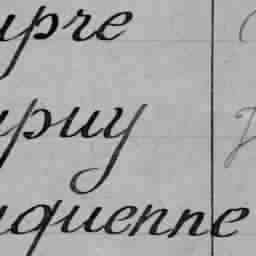 upre
upuy
uquenne